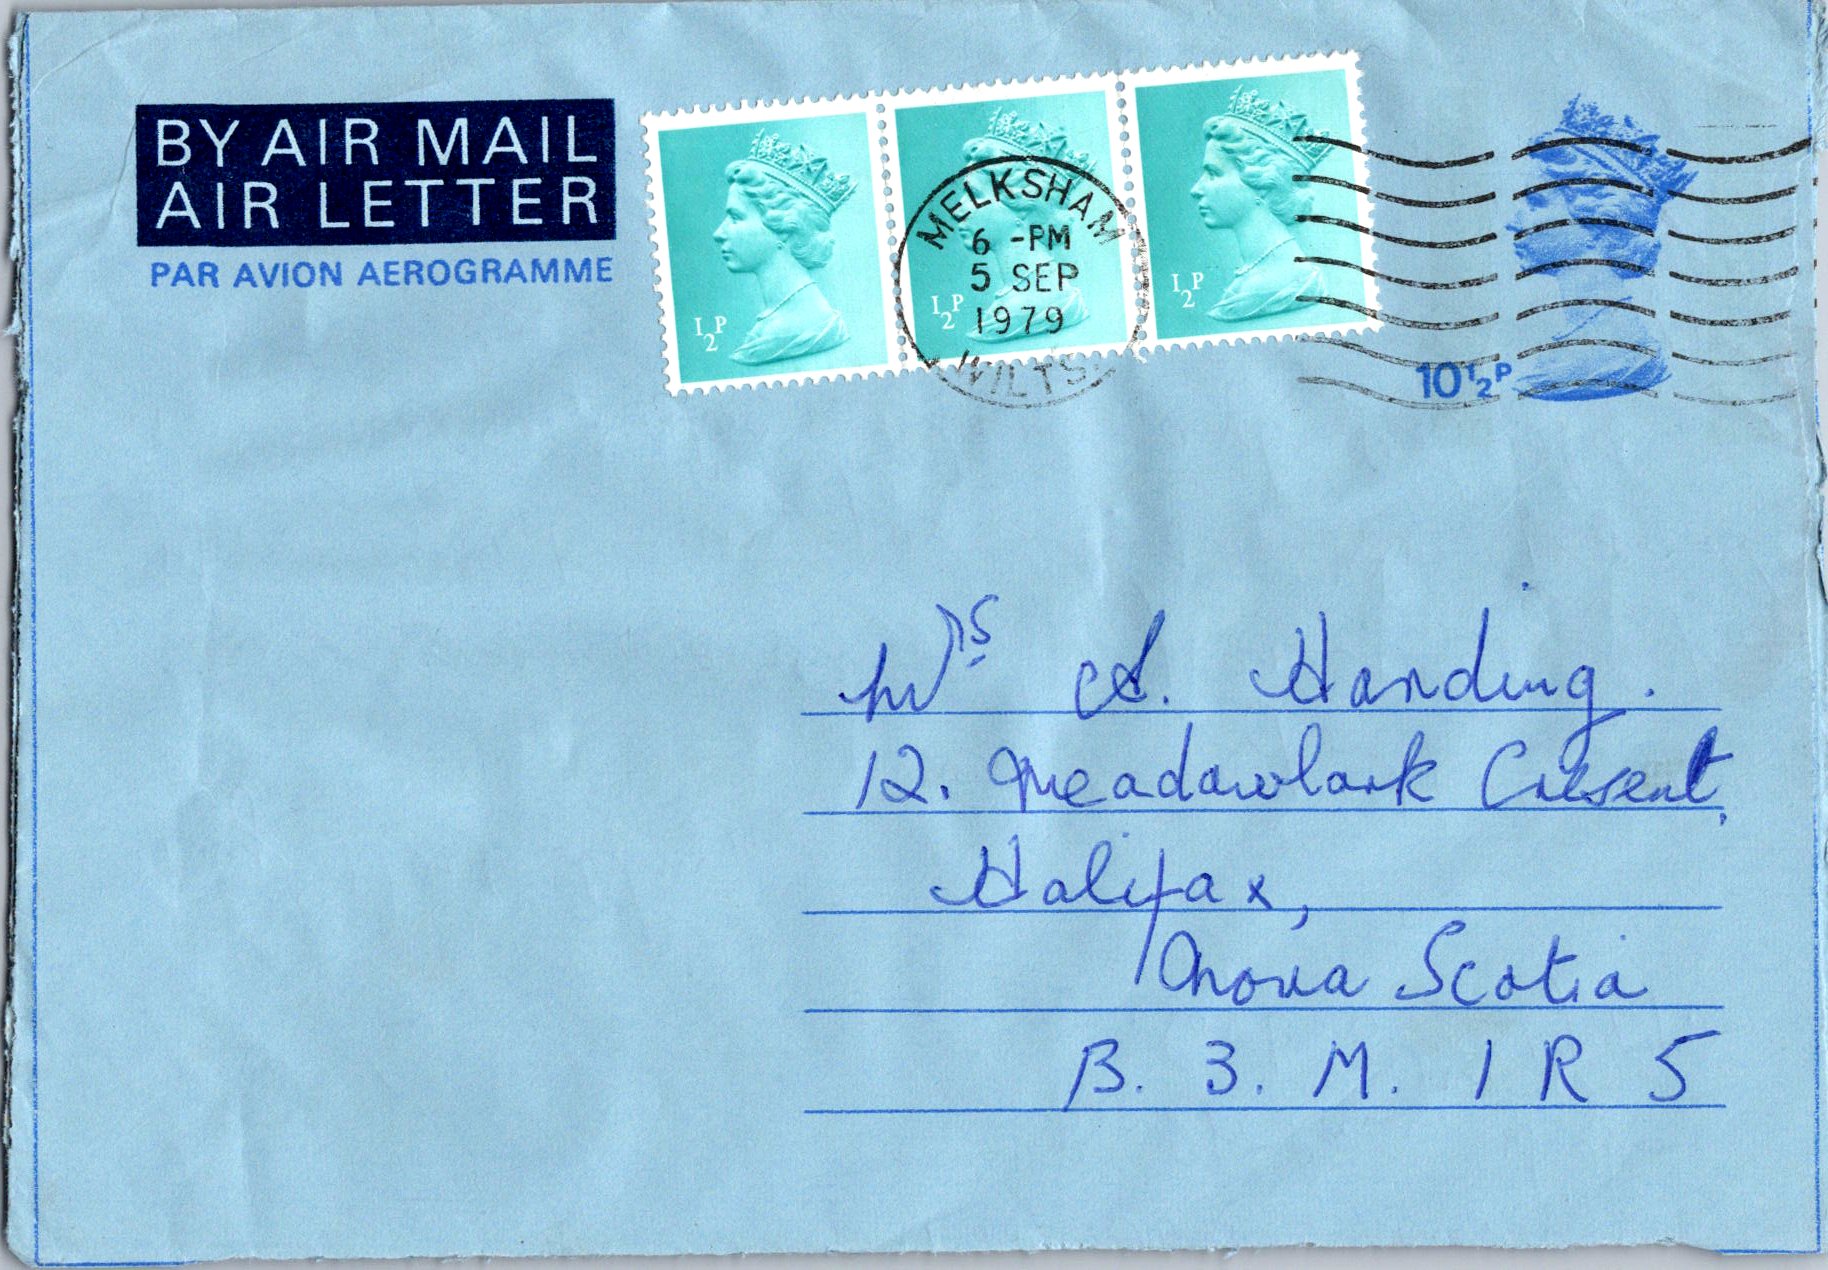 BY AIR MAIL
AIR LETTER
PAR AVION AEROGRAMME
½P
½P
½P
MELKSHAM
6 -PM
5 SEP
1979
WILTS.
10½P
Mrs A. Harding.
12. Meadowlark Cresent,
Halifax,
Nova Scotia
B. 3. M. 1 R 5